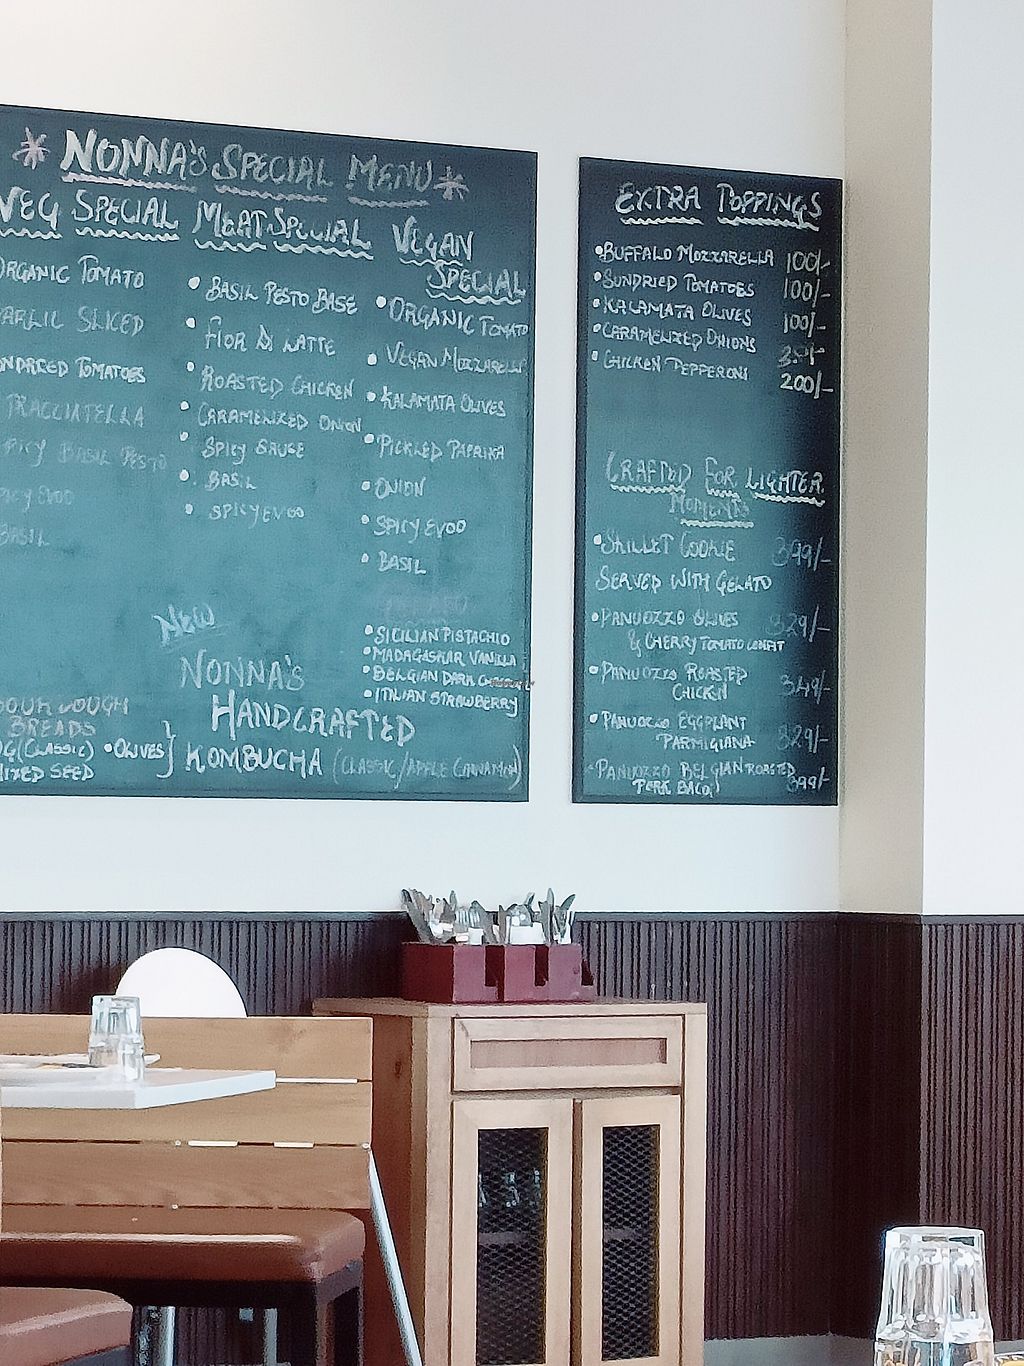 NONNA'S SPECIAL MENU
VEG SPECIAL
ORGANIC TOMATO
GARLIC SLICED
SUNDRIED TOMATOES
STRACCIATELLA
SPICY BASIL PESTO
SPICY EVOO
BASIL
MEAT SPECIAL
• BASIL PESTO BASE
• FIOR DI LATTE
• ROASTED CHICKEN
• CARAMELIZED ONION
• SPICY SAUCE
• BASIL
• SPICY EVOO
VEGAN
SPECIAL
• ORGANIC TOMATO
• VEGAN MOZZARELLA
• KALAMATA OLIVES
• PICKLED PAPRIKA
• ONION
• SPICY EVOO
• BASIL
• SICILIAN PISTACHIO
• MADAGASKAR VANILLA
• BELGIAN DARK
• ITALIAN STRAWBERRY
NEW
NONNA'S
HANDCRAFTED
KOMBUCHA (CLASSIC/APPLE CINNAMON)
BREADS
(CLASSIC) • OLIVES
MIXED SEED
EXTRA TOPPINGS
• BUFFALO MOZZARELLA 100/-
• SUNDRIED TOMATOES 100/-
• KALAMATA OLIVES 100/-
• CARAMELIZED ONIONS
• CHICKEN PEPPERONI 200/-
CRAFTED FOR LIGHTER
MOMENTS
• SKILLET COOKIE 399/-
SERVED WITH GELATO
• PANUOZZO OLIVES 329/-
& CHERRY TOMATO CONFIT
• PANUOZZO ROASTED 349/-
CHICKEN
• PANUOZZO EGGPLANT
PARMIGIANA 329/-
• PANUOZZO BELGIAN ROASTED
PORK BACON 399/-